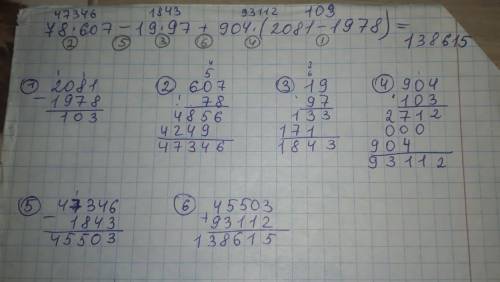 47346 1843 93112 103
78·607-19·97+904·(2081-1978)=
② ⑤ ③ ⑥ ④ ① 138615
① 2081
-1978
103
② 4
5
607
·78
4856
4249
47346
③ 2
6
19
·97
133
171
1843
④ 904
·103
2712
000
904
93112
⑤ 47346
-1843
45503
⑥ 45503
+93112
138615